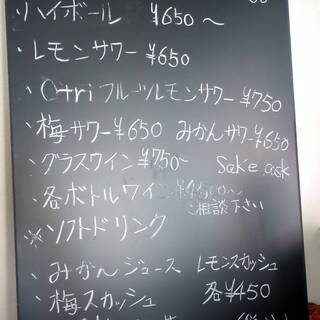 ・ハイボール ¥650〜
・レモンサワー ¥650
・Otriフルーツレモンサワー ¥750
・梅サワー¥650 みかんサワー¥650
・グラスワイン ¥750〜 Sake ask
・各ボトルワイン
ご相談下さい
※ソフトドリンク
・みかんジュース レモンスカッシュ
・梅スカッシュ 各¥450